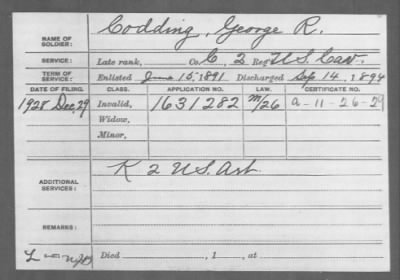 NAME OF SOLDIER: Codding, George R.
SERVICE: Late rank, Co. C, 2 Reg U.S. Cav.
TERM OF SERVICE: Enlisted June 15, 1891 Discharged Sep 14, 1894
DATE OF FILING. CLASS. APPLICATION NO. LAW. CERTIFICATE NO.
1928 Dec 29 Invalid, 1631282 a-11-26-29
Widow,
Minor,
ADDITIONAL SERVICES: K 2 U.S. Art.
REMARKS:
Died , 1 , at